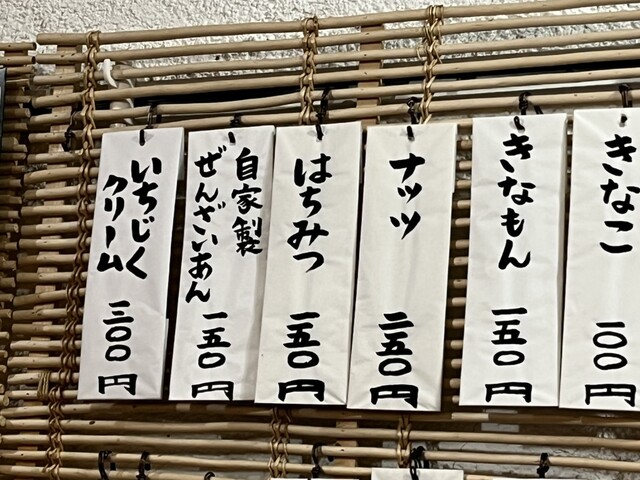 きなこ
一〇〇円
きなもん
一五〇円
ナッツ
二五〇円
はちみつ
一五〇円
自家製
ぜんざいあん
一五〇円
いちじく
クリーム
三〇〇円